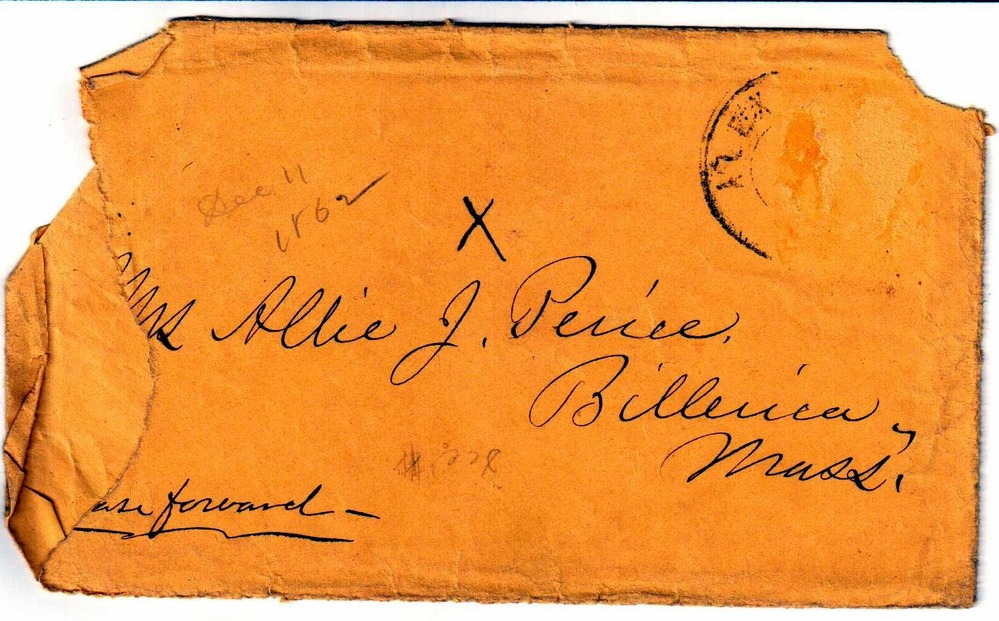 Dec 11
1862
X
Mrs Allie J. Peirce,
Billerica,
Mass.
ase forward —